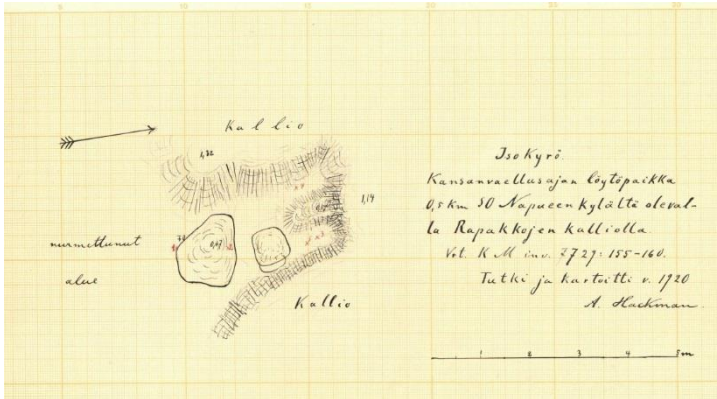 5 10 15 20 25 5
Kallio
1,32
1,14
nurmettunut
alue
0,47
Kallio
Isokyrö.
Kansanvaellusajan löytöpaikka
0,5 km SO Napueen kylältä oleval-
la Rapakkojen kalliolla.
Vrt. K M inv. 2729: 155-160.
Tutki ja kartoitti v. 1920
A. Hackman.
1 2 3 4 5m